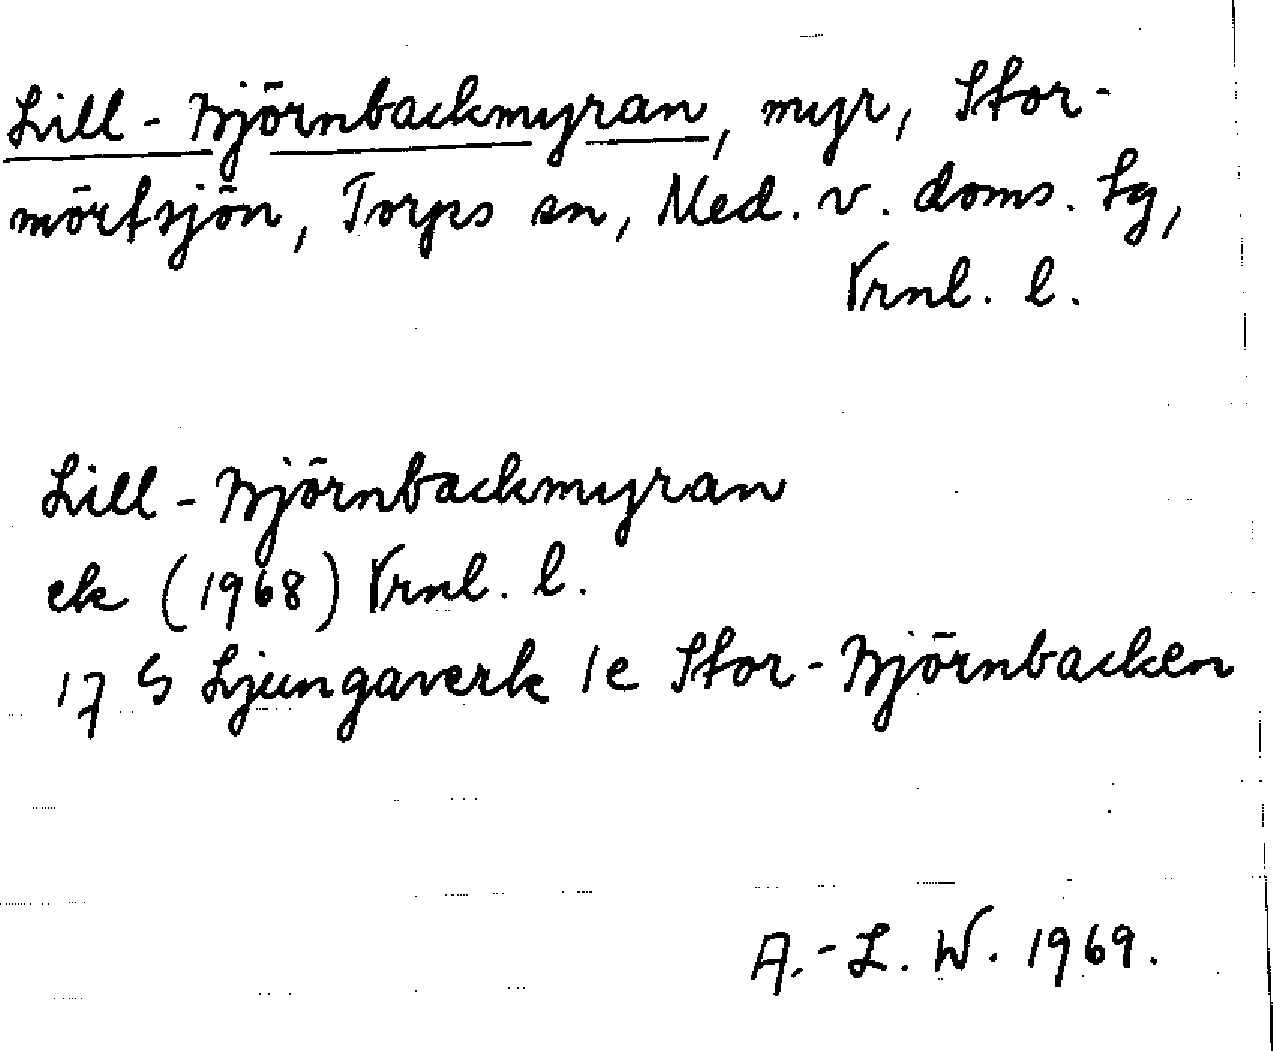 Lill-Björnbackmyran, myr, Stor-
mörtsjön, Torps sn, Med. v. doms. tg,
Vrnl. l.
Lill-Björnbackmyran
ek (1968) Vrnl. l.
17 G Ljungaverk 1e Stor-Björnbacken
A.-L. W. 1969.